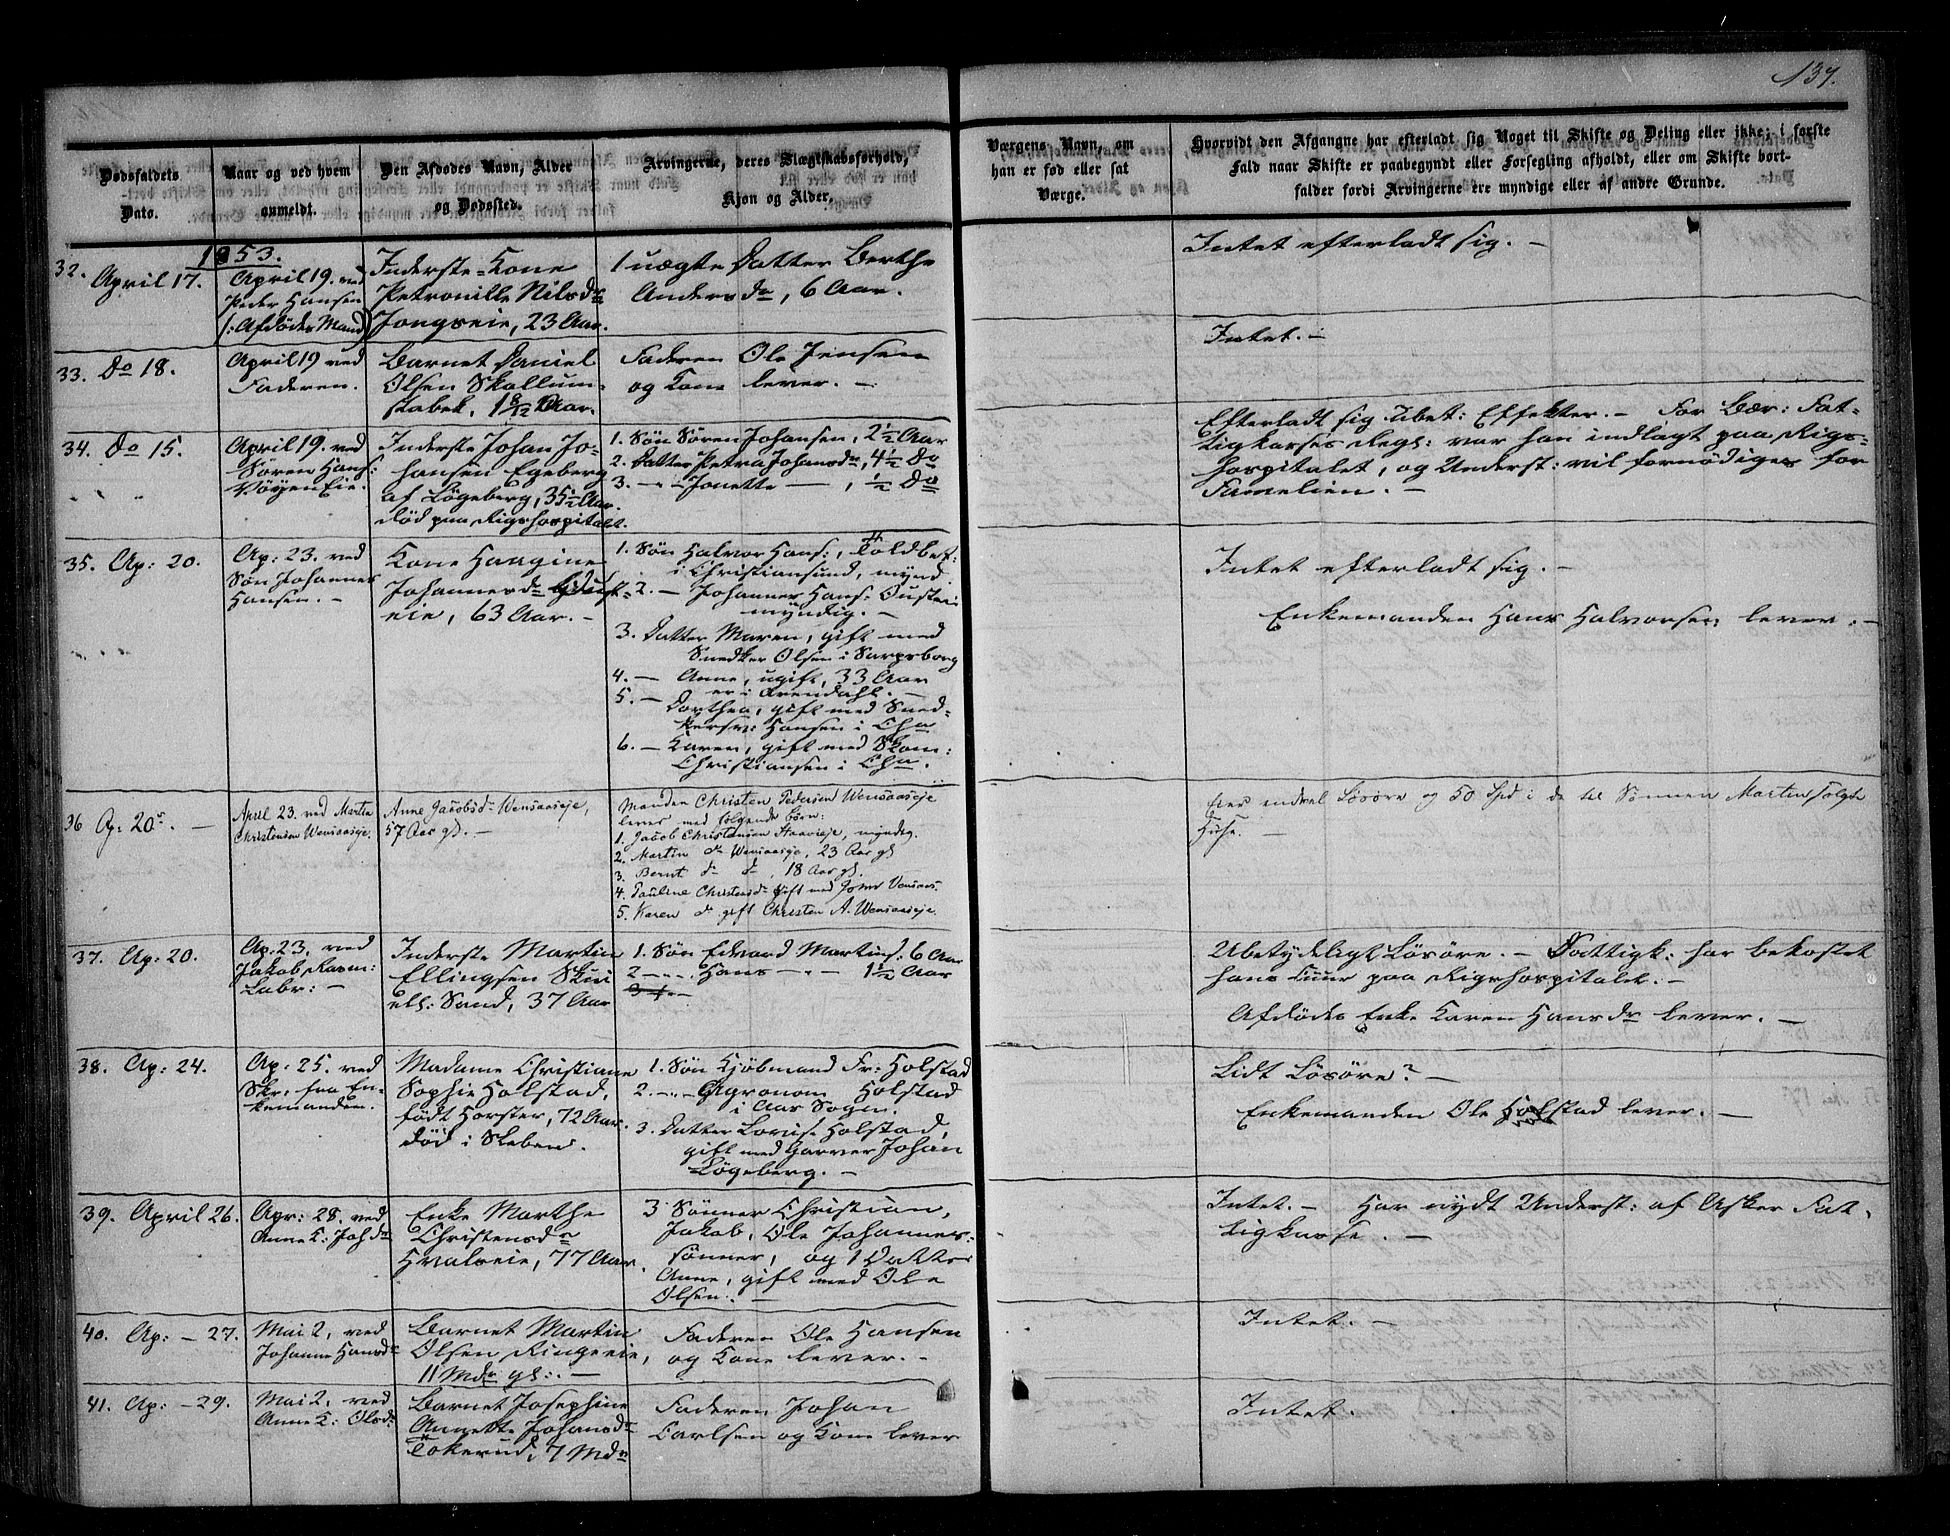 137.
Dødsfaldets
Dato.
Naar og ved hvem
anmeldt.
Den Afdødes Navn, Alder
og Dødssted.
Arvingerne, deres Slægtskabsforhold,
Kjøn og Alder.
Værgens Navn, om
han er fød eller sat
Værge.
Hvorvidt den Afgangne har efterladt sig Noget til Skifte og Deling eller ikke; i første
Fald naar Skifte er paabegyndt eller Forsegling afholdt, eller om Skifte bort-
falder fordi Arvingerne ere myndige eller af andre Grunde.
1853.
32. April 17.
April 19. ved
Peder Hansen
(: Afdødes Mand)
Inderste-Kone
Petronille Nilsdr
Jongseie, 23 Aar.
1 uægte Datter Berthe
Andersdr, 6 Aar.
Intet efterladt sig. -
33. Do 18.
April 19 ved
Faderen.
Barnet Daniel
Olsen Skollum-
stabek, 1 8/12 Aar.
Faderen Ole Jensen
og Kone lever. -
Intet. -
34. Do 15.
April 19. ved
Søren Hans:
Vøyen Eie.
Inderste Johan Jo-
hansen Egeberg
af Løgeberg, 35½ Aar.
død paa Rigshospitalt.
1. Søn Søren Johansen, 2½ Aar
2. Datter Petra Johansdr, 4½ Do
3. - - Jonette - , ½ Do
Efterladt sig ubet: Effekter. - For Bær: Fat-
tigkasses Regl: var han indlagt paa Rigs-
hospitalet, og Underst: vil fornødiges for
Familien. -
35. Ap: 20.
Ap: 23. ved
Søn Johannes
Hansen. -
Kone Haagine
Johannesdr
eie, 63 Aar. -
1. Søn Halvor Hans:, Toldbet:
i Christiansund, mynd.
2. - Johannes Hans:
myndig. -
3. Datter Maren, gift med
Snedker Olsen i Sarpsborg
4. - Anne, ugift, 33 Aar
er i Arendahl. -
5. - Dorthea, gift med Sned-
kersv: Hansen i Cha
6. - Karen, gift med Skom:
Christiansen i Cha.
Intet efterladt sig. -
Enkemanden Hans Halvorsen lever. -
36 Ap: 20de. -
April 23. ved Martin
Christensen Wensaaseje.
Anne Jacobsdr Wensaaseje,
57 Aar gl. -
Manden Christen Pedersen Wensaaseje
lever med følgende Børn:
1. Jacob Christensen Haaveje, myndig.
2. Martin do Wensaaseje, 23 Aar gl
3. Bernt do do, 18 Aar gl.
4. Pauline Christensdr gift med
5. Karen do gift Christen A. Wensaaseje.
Eier endeel Løsøre og 50 Spd i de til Sønnen Martin solgte
Huse. -
37. Ap: 20.
Ap. 23. ved
Jakob Rasm:
Labr: -
Inderste Martin
Ellingsen Skui
ell: Sand, 37 Aar
1. Søn Edvard Martins: 6 Aar
2 - - Hans - - 1½ Aar
Ubetydeligt Løsøre. - Fattigk: har bekostet
hans Cuur paa Rigshospitalet. -
Afdødes Enke Karen Hansdr lever. -
38. Ap: 24.
Ap: 25. ved
Skr. fra En-
kemanden.
Madame Christiane
Sophie Holstad,
født Horster, 72 Aar.
død i Sleben.
1. Søn Kjøbmand Fr: Holstad
2. - - Agronom Holstad
i Aas Sogn.
3. Datter Lovise Holstad,
gift med Garver Johan
Løgeberg. -
Lidt Løsøre? -
Enkemanden Ole Holstad lever. -
39. April 26.
Apr: 28. ved
Anne K: Johdr
Enke Marthe
Christensdr
Hvalseie, 77 Aar.
3 Sønner Christian,
Jakob, Ole Johannes-
sønner, og 1 Datter
Anne, gift med Ole
Olsen. -
Intet. - Har nydt Underst: af Asker Fat-
tigkasse. -
40. Ap: - 27.
Mai 2, ved
Johanne Hansdr
Barnet Martin
Olsen Ringseie,
11 Mdr gl: -
Faderen Ole Hansen
og Kone lever. -
Intet. -
41. Ap: - 29.
Mai 2, ved
Anne K: Olsdr
Barnet Josephine
Annette Johansdr
Tokerud, 7 Mdr
Faderen Johan
Carlsen og Kone lever
Intet.